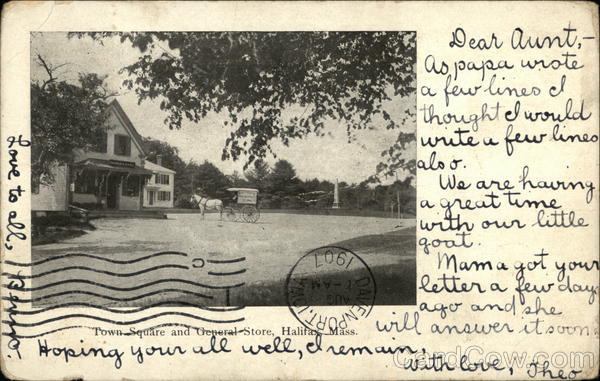 Dear Aunt,-
As papa wrote
a few lines I
thought I would
write a few lines
also.
We are having
a great time
with our little
goat.
Mama got your
letter a few days
ago and she
will answer it soon.
Hoping your all well, I remain,
with love, Theo
Love to all,
Town Square and General Store, Halifax, Mass.
DAVENPORT, IOWA
AUG
7-AM
1907
C
CardCow.com